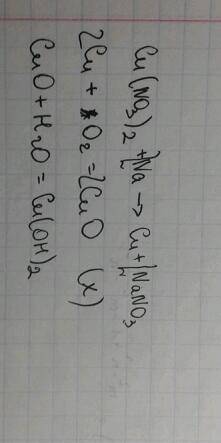 Cu(NO3)2 + 2Na → Cu + 2NaNO3
2Cu + O2 = 2CuO (x)
CuO + H2O = Cu(OH)2